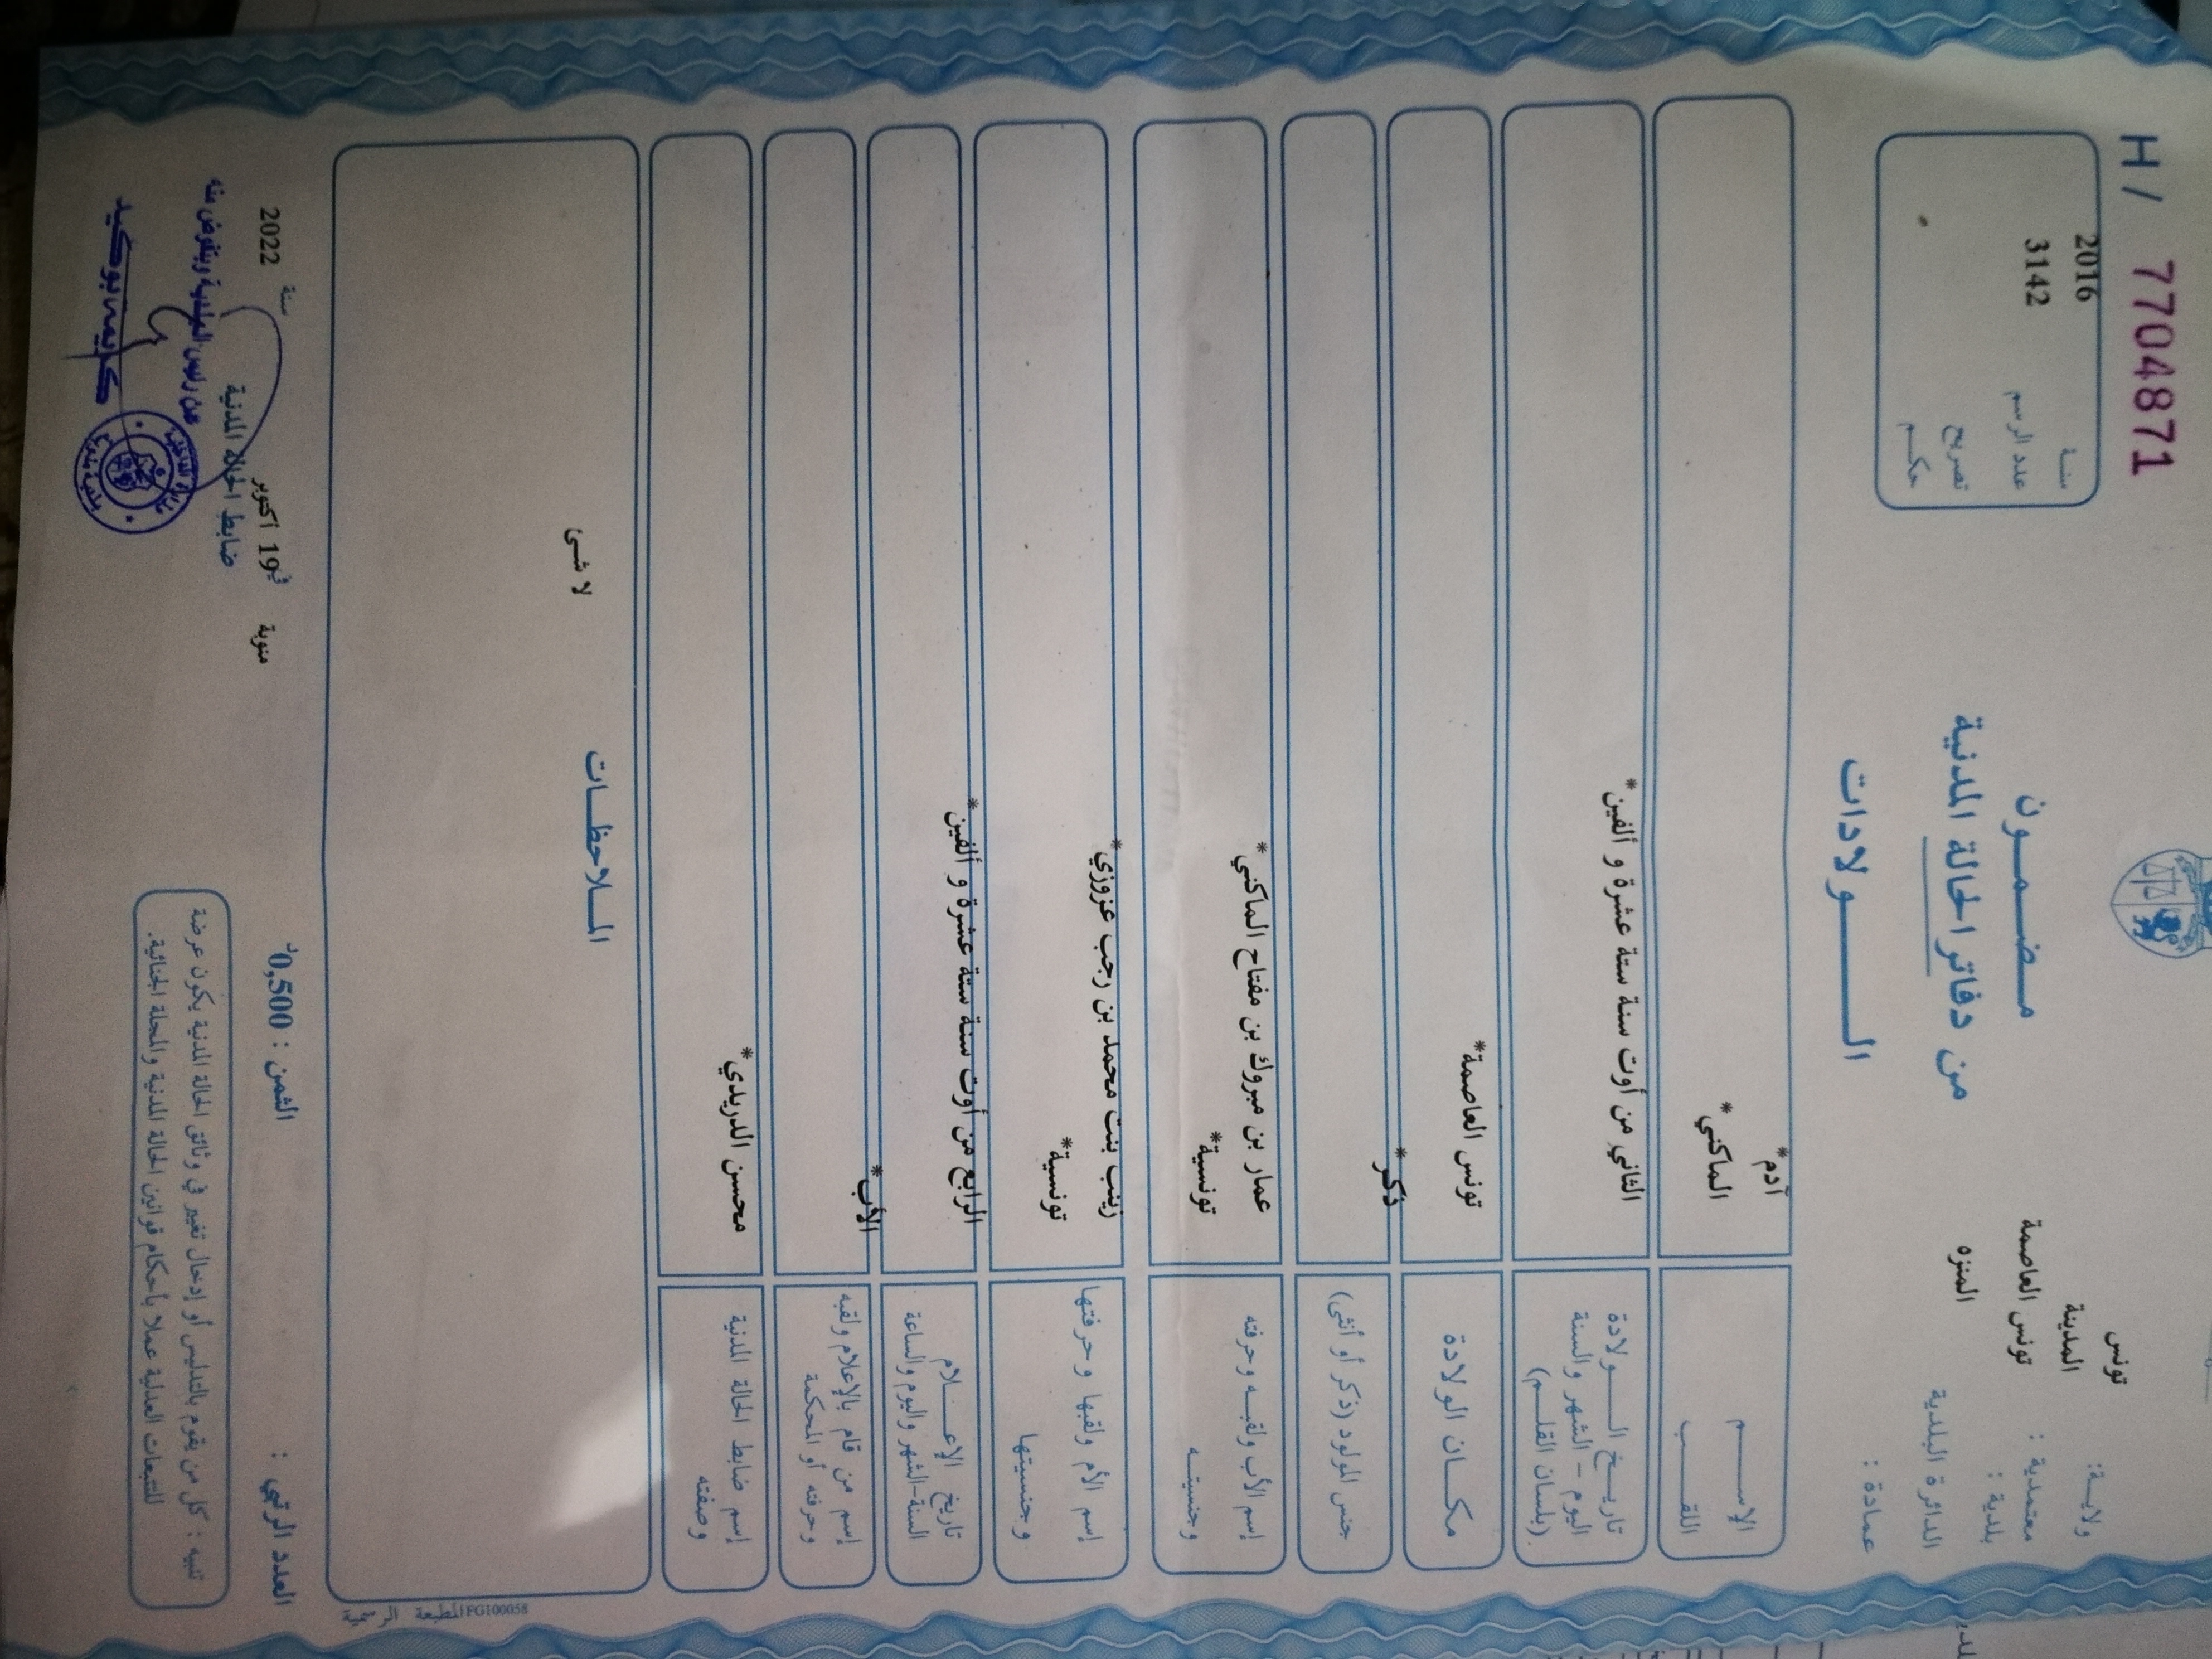 H / 7704871
ولايـة: تونس
معتمدية : المدينة
بلدية : تونس العاصمة
الدائرة البلدية المنزه
عمادة :
سنـة 2016
عدد الرسم 3142
تصريح
حكـم
مـضـمـون
من دفاتر الحالة المدنية
الـــولادات
الإســـم آدم*
اللقـــب الماكني*
تاريـخ الـــولادة
اليوم - الشهر والسنة
(بلسان القلـم)
الثاني من أوت سنة ستة عشرة و ألفين*
مكـان الولادة تونس العاصمة*
جنس المولود (ذكر أو أنثى) ذكر*
إسم الأب ولقبـه وحرفته عمار بن مبروك بن مفتاح الماكني*
وجنسيتـه تونسية*
إسم الأم ولقبها وحرفتها زينب بنت محمد بن رجب عزوزي*
وجنسيتها تونسية*
تاريخ الإعـــلام
السنة-الشهر واليوم والساعة
الرابع من أوت سنة ستة عشرة و ألفين*
إسم من قام بالإعلام ولقبه
وحرفته أو المحكمة
الأب*
إسم ضابط الحالة المدنية
وصفته
محسن الدريدي*
المـلاحظـات
لا شئ
المطبعة الرسمية FG100058
العدد الرتبي :
الثمن : 0,500د
منوبة في 19 أكتوبر سنة 2022
ضابط الحالة المدنية
عن رئيس البلدية وبتفويض منه
تنبيه : كل من يقوم بالتدليس أو إدخال تغيير في وثائق الحالة المدنية يكون عرضة
للتتبعات العدلية عملا بأحكام قوانين الحالة المدنية والمجلة الجنائية.